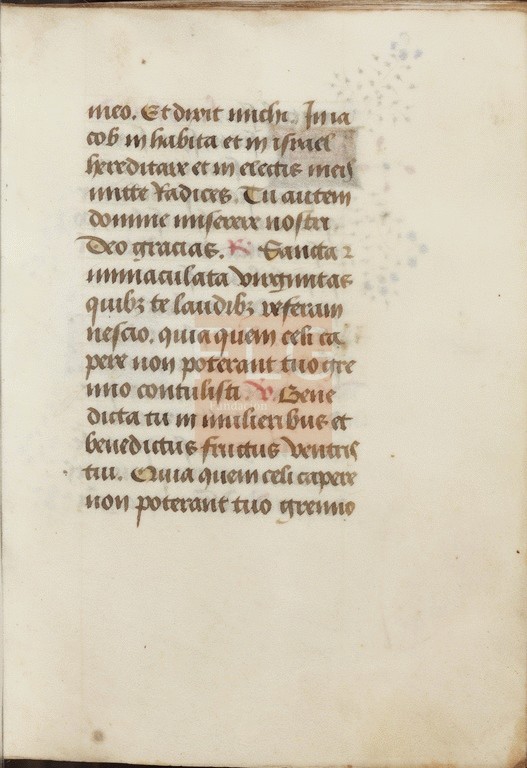 meo. Et dixit michi. In ia
cob in habita et in israel
hereditare et in electis meis
mitte Radices. Tu autem
domine miserere nostri
Deo gracias. R. Sancta 2
immaculata virginitas
quibꝫ te laudibꝫ referam
nescio. quia quem celi ca
pere non poterant tuo gre
mio contulisti. V. Bene
dicta tu in mulieribus et
benedictus fructus ventris
tui. Quia quem celi capere
non poterant tuo gremio
FLG
Fundación